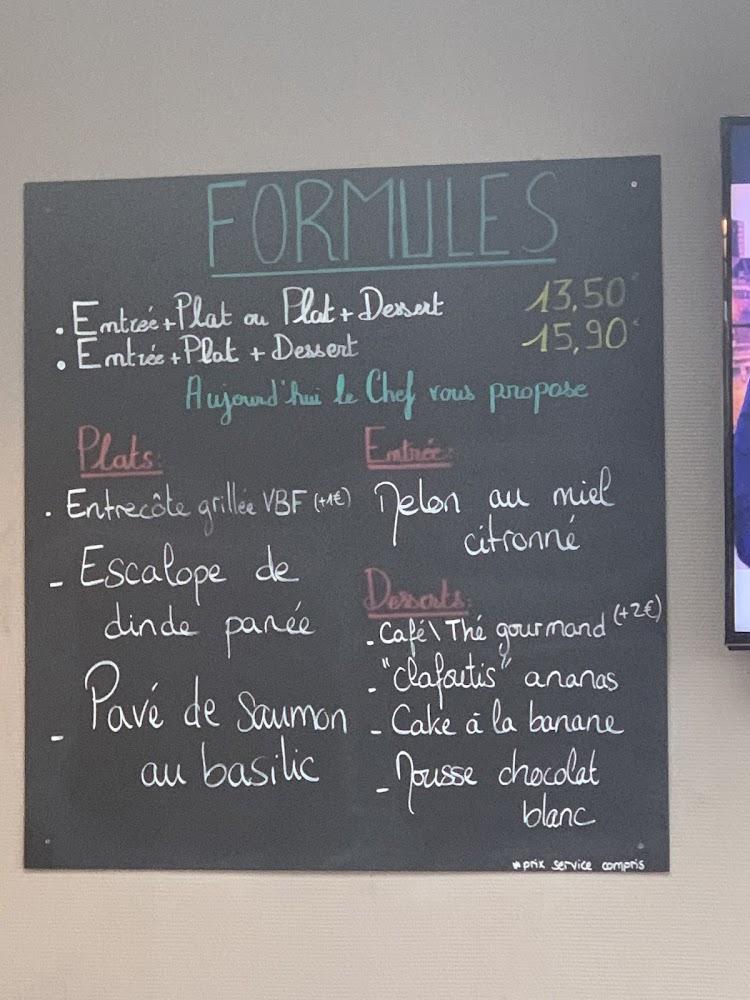 FORMULES
. Entrée+Plat ou Plat+Dessert 13,50*
. Entrée+Plat + Dessert 15,90*
Aujourd'hui le Chef vous propose
Plats:
. Entrecôte grillée VBF (+1€)
- Escalope de
dinde panée
- Pavé de Saumon
au basilic
Entrée:
Melon au miel
citronné
Desserts:
- Café\Thé gourmand (+2€)
- "clafoutis" ananas
- Cake à la banane
- Mousse chocolat
blanc
*prix service compris